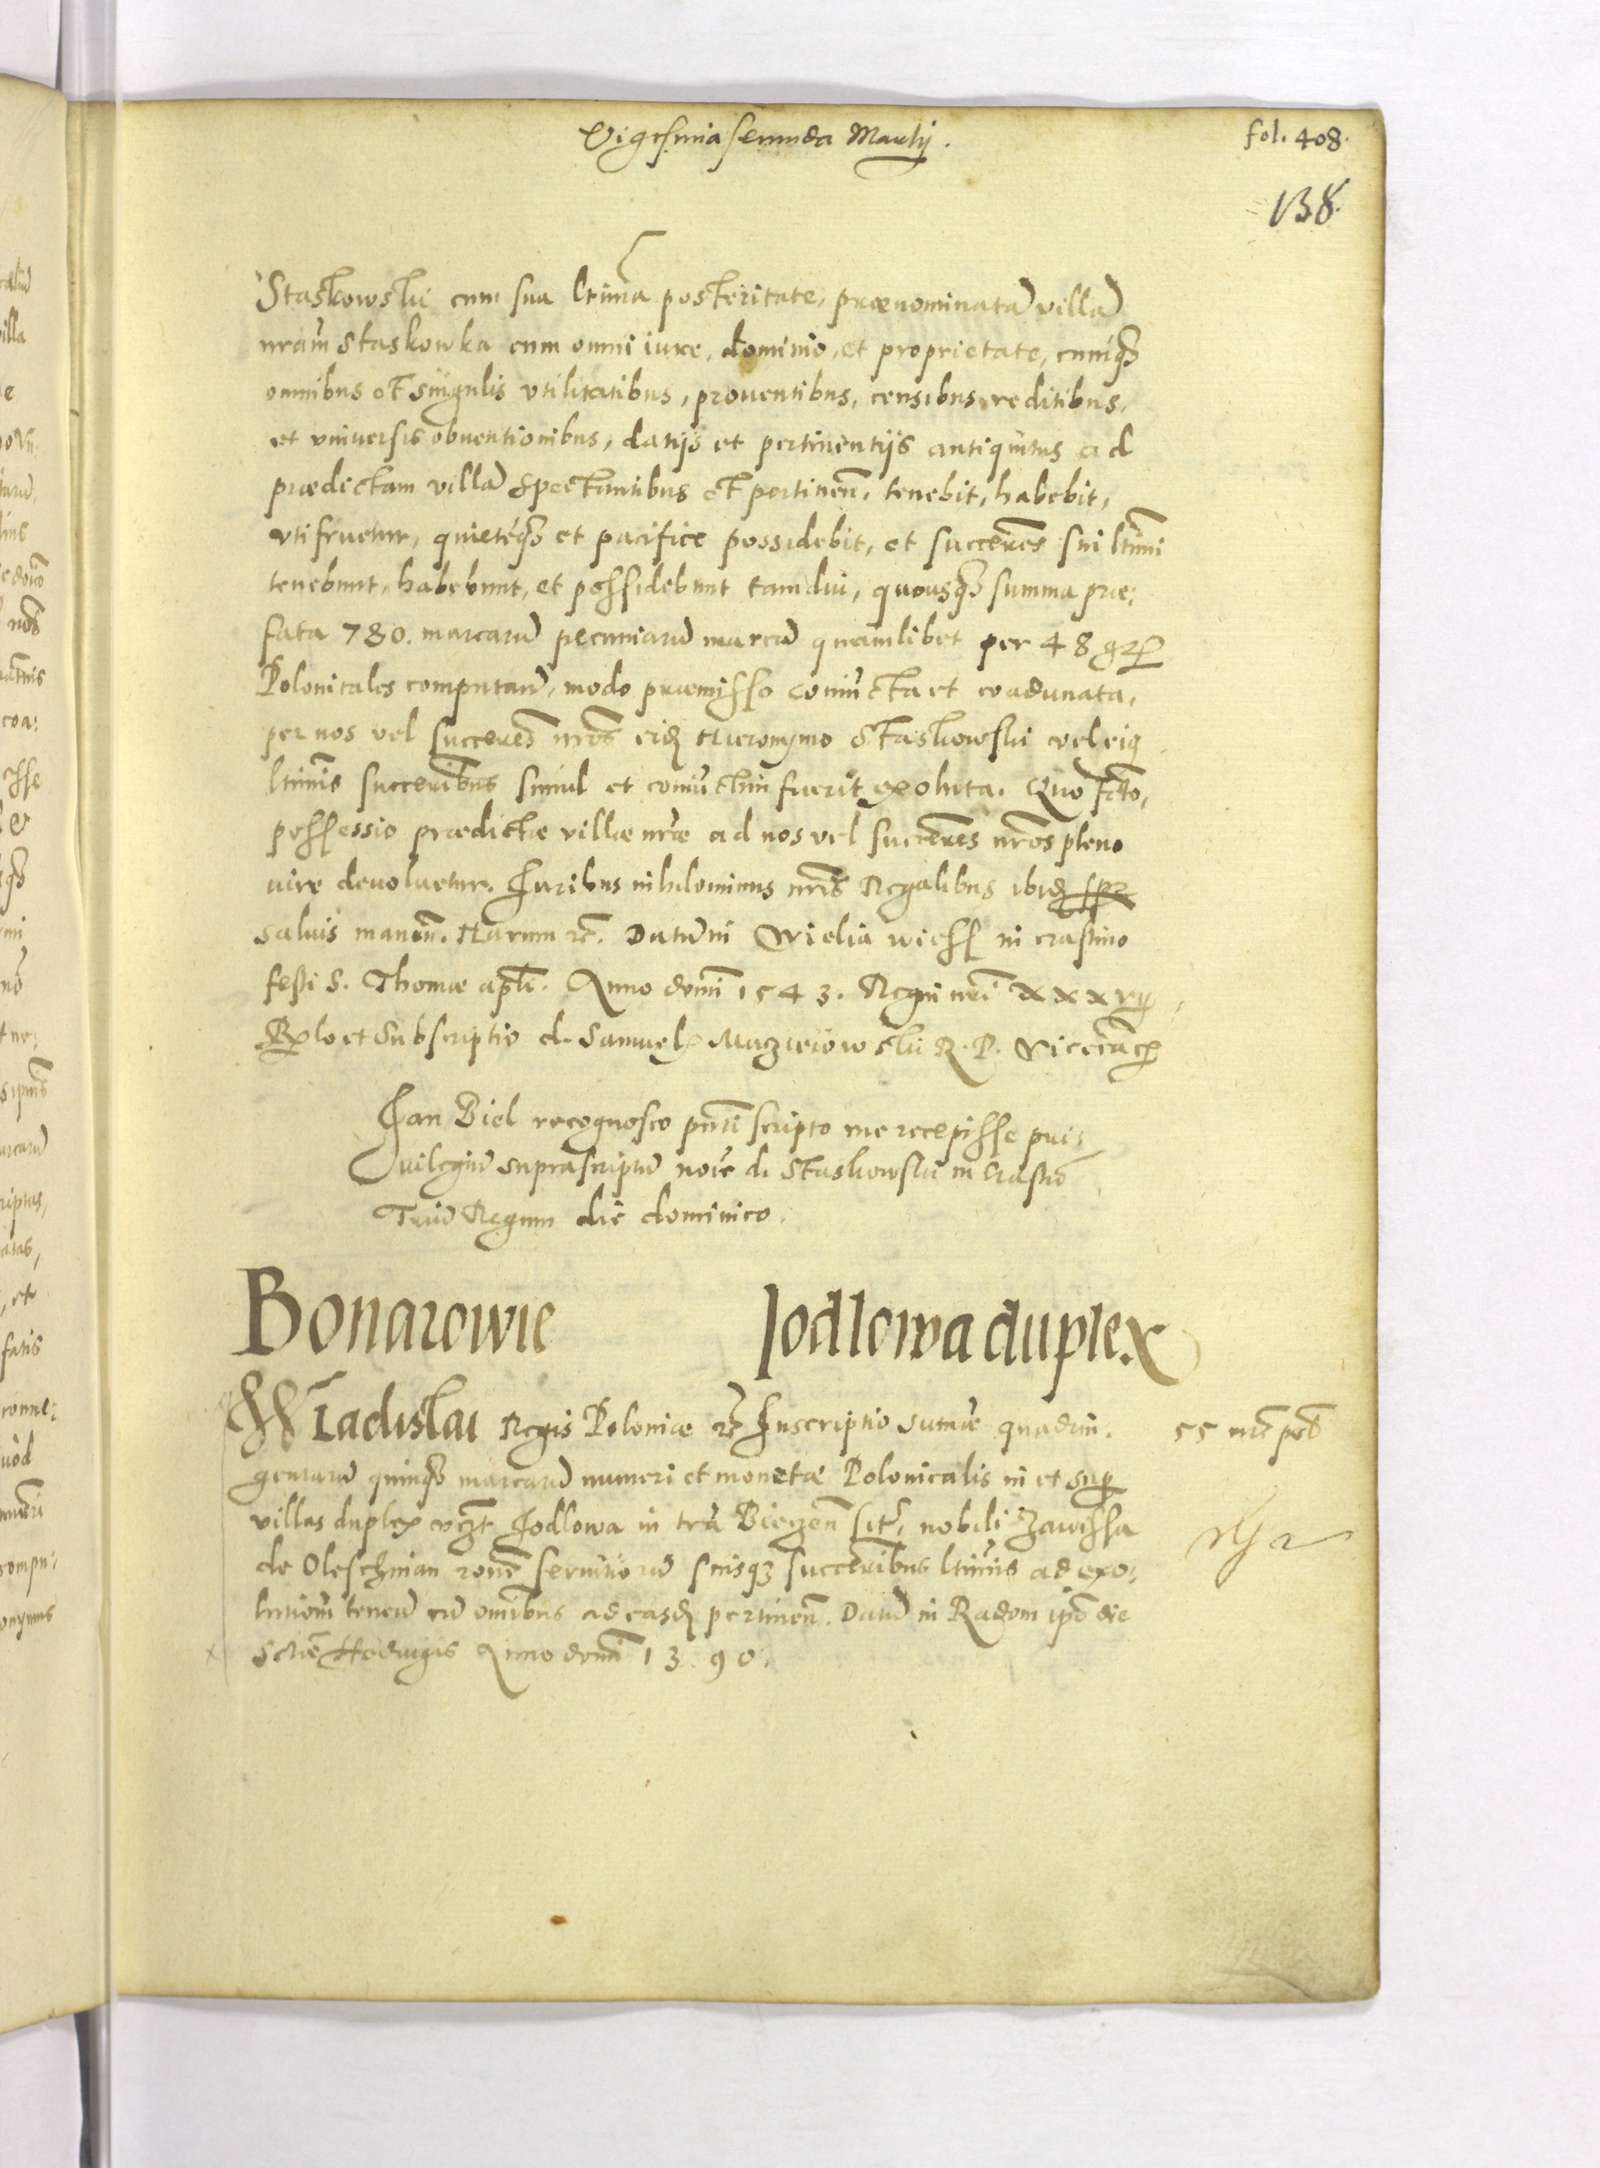 Vigesima secunda Martij.
fol. 408.
138.
Staskowski cum sua ltima posteritate, prænominatã villã
nram Staskowka cum omni iure, dominio, et proprietate, cumq3
omnibus et singulis vtilitatibus, prouentibus, censibus, reditibus,
et vniuersis obuentionibus, datijs et pertinentijs antiquitus ad
prædictam villã spectantibus et pertineñ, tenebit, habebit,
vtifruetur, quieteq3 et pacifice possidebit, et succeres sui ltimi
tenebunt, habebunt, et possidebunt tamdiu, quousq3 summa præ:
fata 780. marcarũ pecuniarũ marcã quamlibet per 48 gr
Polonicales computanñ, modo præmisso coniuncta et coadunata,
per nos vel succeres nros eid Hieronymo Staskowski vel eiq
ltimis succeribus simul et coniunctim fuerit exoluta. Quo fcto,
possessio prædictæ villæ nræ ad nos vel succeres nros pleno
iure deuoluetur. Iuribus nihilominus nris Regalibus ibid
saluis maneñ. Harum rc. Datum in Vielia wiess in crastino
festi S. Thomæ apli. Anno domi 1543. Regni nri XXXVII
Rlo et Subscriptio d. Samuel Maczieiowski R. P. Vicecãcr
Jan Biel recognosco pnti scripto me recepisse pri:
uilegiũ suprascriptũ noie d. Staskowski in Crastio
Triũ Regum die dominico.
Bonarowie Jodlowa duplex
Wladislai Regis Poloniæ rc Inscriptio sumæ quadrin.
55 mr
gentarũ quinq3 marcarũ numeri et monetæ Polonicalis in et sup
villas duplex vczt Jodlowa in tra Biecen sit, nobili Zawissa
de Oleschnian rone seruitiorũ suisq3 succeribus ltimis ad exo:
lutionem tenen cũ omibus ad easd pertineñ. Datũ in Radom ipo die
Sctæ Hedwigis Anno domi 1390.